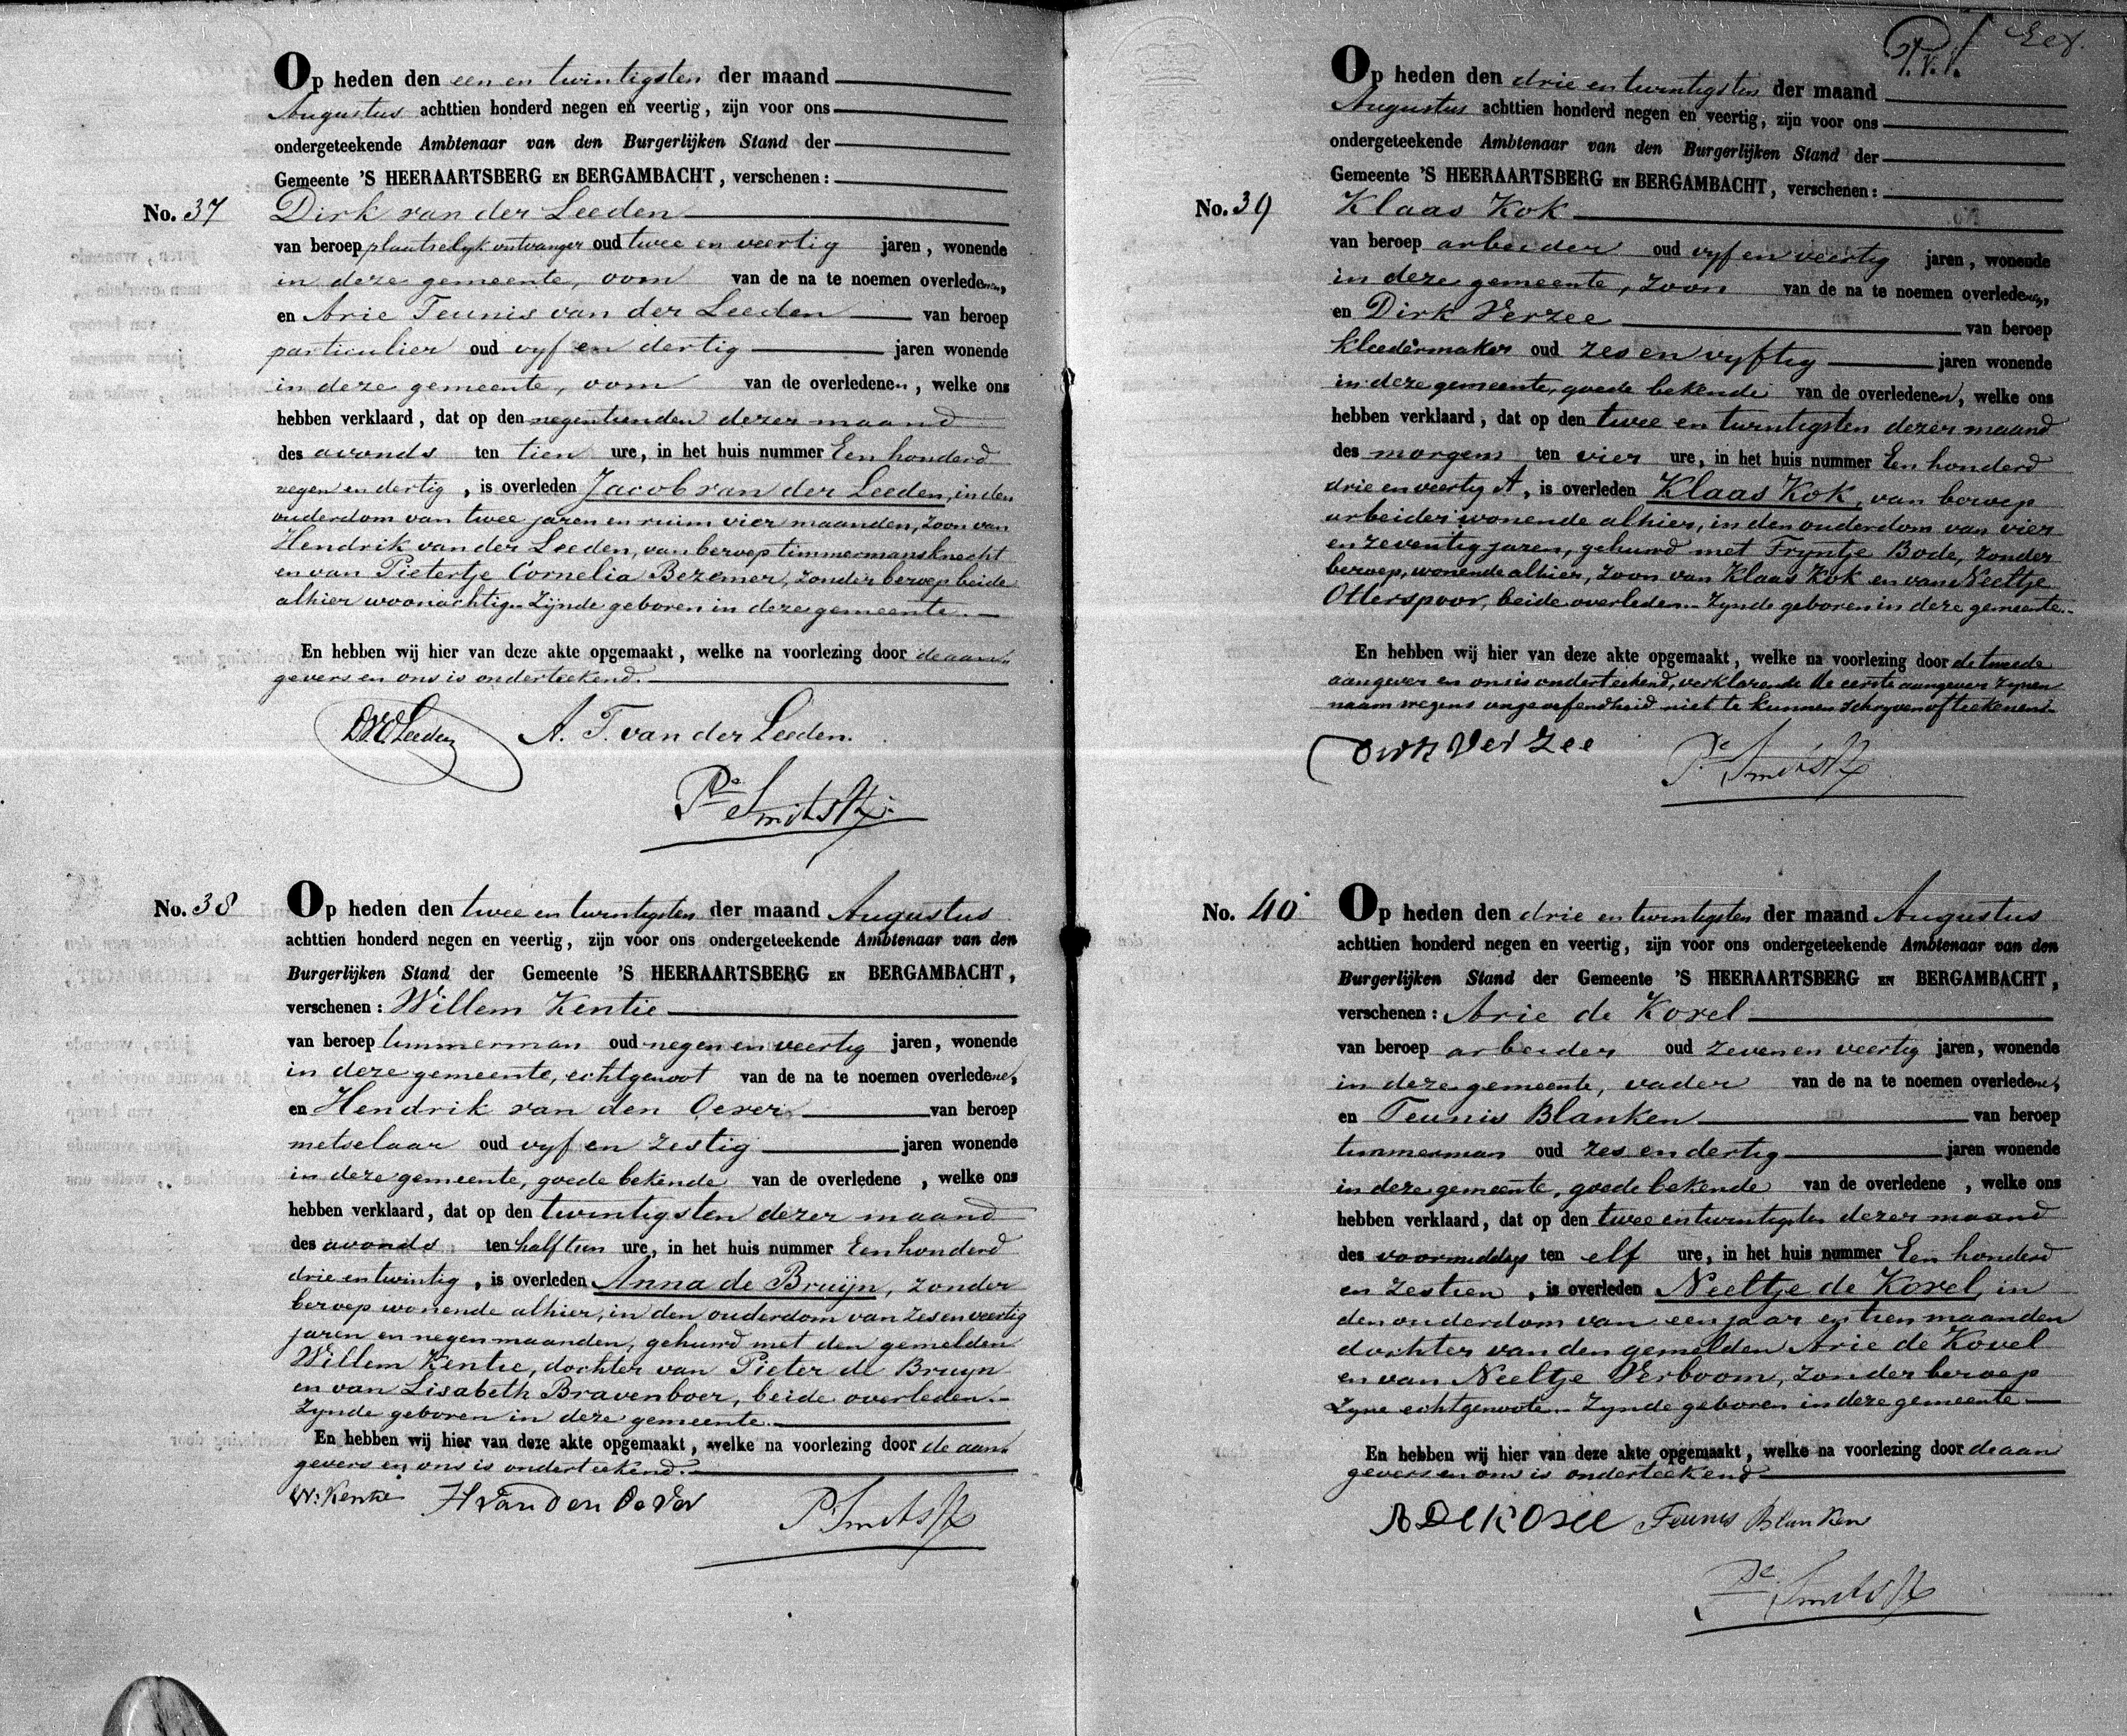 Op heden den een en twintigsten der maand
Augustus achttien honderd negen en veertig, zijn voor ons
ondergeteekende Ambtenaar van den Burgerlijken Stand der
Gemeente 'S HEERAARTSBERG EN BERGAMBACHT, verschenen:
No. 37 Dirk van der Leeden
van beroep plaatselyk ontvanger oud twee en veertig jaren, wonende
in deze gemeente, oom van de na te noemen overledenen,
en Arie Teunis van der Leeden van beroep
particulier oud vyf en dertig jaren wonende
in deze gemeente, oom van de overledenen, welke ons
hebben verklaard, dat op den negentienden dezer maand
des avonds ten tien ure, in het huis nummer Een honderd
negen en dertig, is overleden Jacob van der Leeden, in den
ouderdom van twee jaren en ruim vier maanden, zoon van
Hendrik van der Leeden, van beroep timmermansknecht
en van Pietertje Cornelia Bezemer, zonder beroep beide
alhier woonachtig. Zijnde geboren in deze gemeente.
En hebben wij hier van deze akte opgemaakt, welke na voorlezing door de aan-
gevers en ons is onderteekend.
DVDLeeden A. T. van der Leeden.
Pr Smits Hz
No. 38 Op heden den twee en twintigsten der maand Augustus
achttien honderd negen en veertig, zijn voor ons ondergeteekende Ambtenaar van den
Burgerlijken Stand der Gemeente 'S HEERAARTSBERG EN BERGAMBACHT,
verschenen: Willem Kentie
van beroep timmerman oud negen en veertig jaren, wonende
in deze gemeente, echtgenoot van de na te noemen overledene,
en Hendrik van den Oever van beroep
metselaar oud vyf en zestig jaren wonende
in deze gemeente, goede bekende van de overledene, welke ons
hebben verklaard, dat op den twintigsten dezer maand
des avonds ten half tien ure, in het huis nummer Een honderd
drie en twintig, is overleden Anna de Bruijn, zonder
beroep wonende alhier, in den ouderdom van zes en veertig
jaren en negen maanden, gehuwd met den gemelden
Willem Kentie, dochter van Pieter de Bruyn
en van Lisabeth Bravenboer, beide overleden.-
Zynde geboren in deze gemeente.
En hebben wij hier van deze akte opgemaakt, welke na voorlezing door de aan-
gevers en ons is onderteekend.
W: Kentie H van den Oever
Pr Smits Hz
Op heden den drie en twintigsten der maand
Augustus achttien honderd negen en veertig, zijn voor ons
ondergeteekende Ambtenaar van den Burgerlijken Stand der
Gemeente 'S HEERAARTSBERG EN BERGAMBACHT, verschenen:
No. 39 Klaas Kok
van beroep arbeider oud vyf en veertig jaren, wonende
in deze gemeente, zoon van de na te noemen overledenen,
en Dirk Verzee van beroep
kleedermaker oud zes en vyftig jaren wonende
in deze gemeente, goede bekende van de overledenen, welke ons
hebben verklaard, dat op den twee en twintigsten dezer maand
des morgens ten vier ure, in het huis nummer Een honderd
drie en veertig A, is overleden Klaas Kok, van beroep
arbeider wonende alhier, in den ouderdom van vier
en zeventig jaren, gehuwd met Fryntje Bode, zonder
beroep, wonende alhier, zoon van Klaas Kok en van Neeltje
Otterspoor, beide overleden.- Zynde geboren in deze gemeente.-
En hebben wij hier van deze akte opgemaakt, welke na voorlezing door de tweede
aangever en ons is onderteekend, verklarende de eerste aangever zynen
naam wegens ongeoefendheid niet te kunnen schryven of teekenen.
Dirk Ver Zee
Pr Smits Hz
No. 40 Op heden den drie en twintigsten der maand Augustus
achttien honderd negen en veertig, zijn voor ons ondergeteekende Ambtenaar van den
Burgerlijken Stand der Gemeente 'S HEERAARTSBERG EN BERGAMBACHT,
verschenen: Arie de Kovel
van beroep arbeider oud zeven en veertig jaren, wonende
in deze gemeente, vader van de na te noemen overledene,
en Teunis Blanken van beroep
timmerman oud zes en dertig jaren wonende
in deze gemeente, goede bekende van de overledene, welke ons
hebben verklaard, dat op den twee en twintigsten dezer maand
des voormiddags ten elf ure, in het huis nummer Een honderd
en zestien, is overleden Neeltje de Kovel, in
den ouderdom van een jaar en tien maanden
dochter van den gemelden Arie de Kovel
en van Neeltje Verboom, zonder beroep
zyne echtgenoote.- Zynde geboren in deze gemeente
En hebben wij hier van deze akte opgemaakt, welke na voorlezing door de aan
gevers en ons is onderteekend
A De Kovel Teunis Blanken
Pr Smits Hz